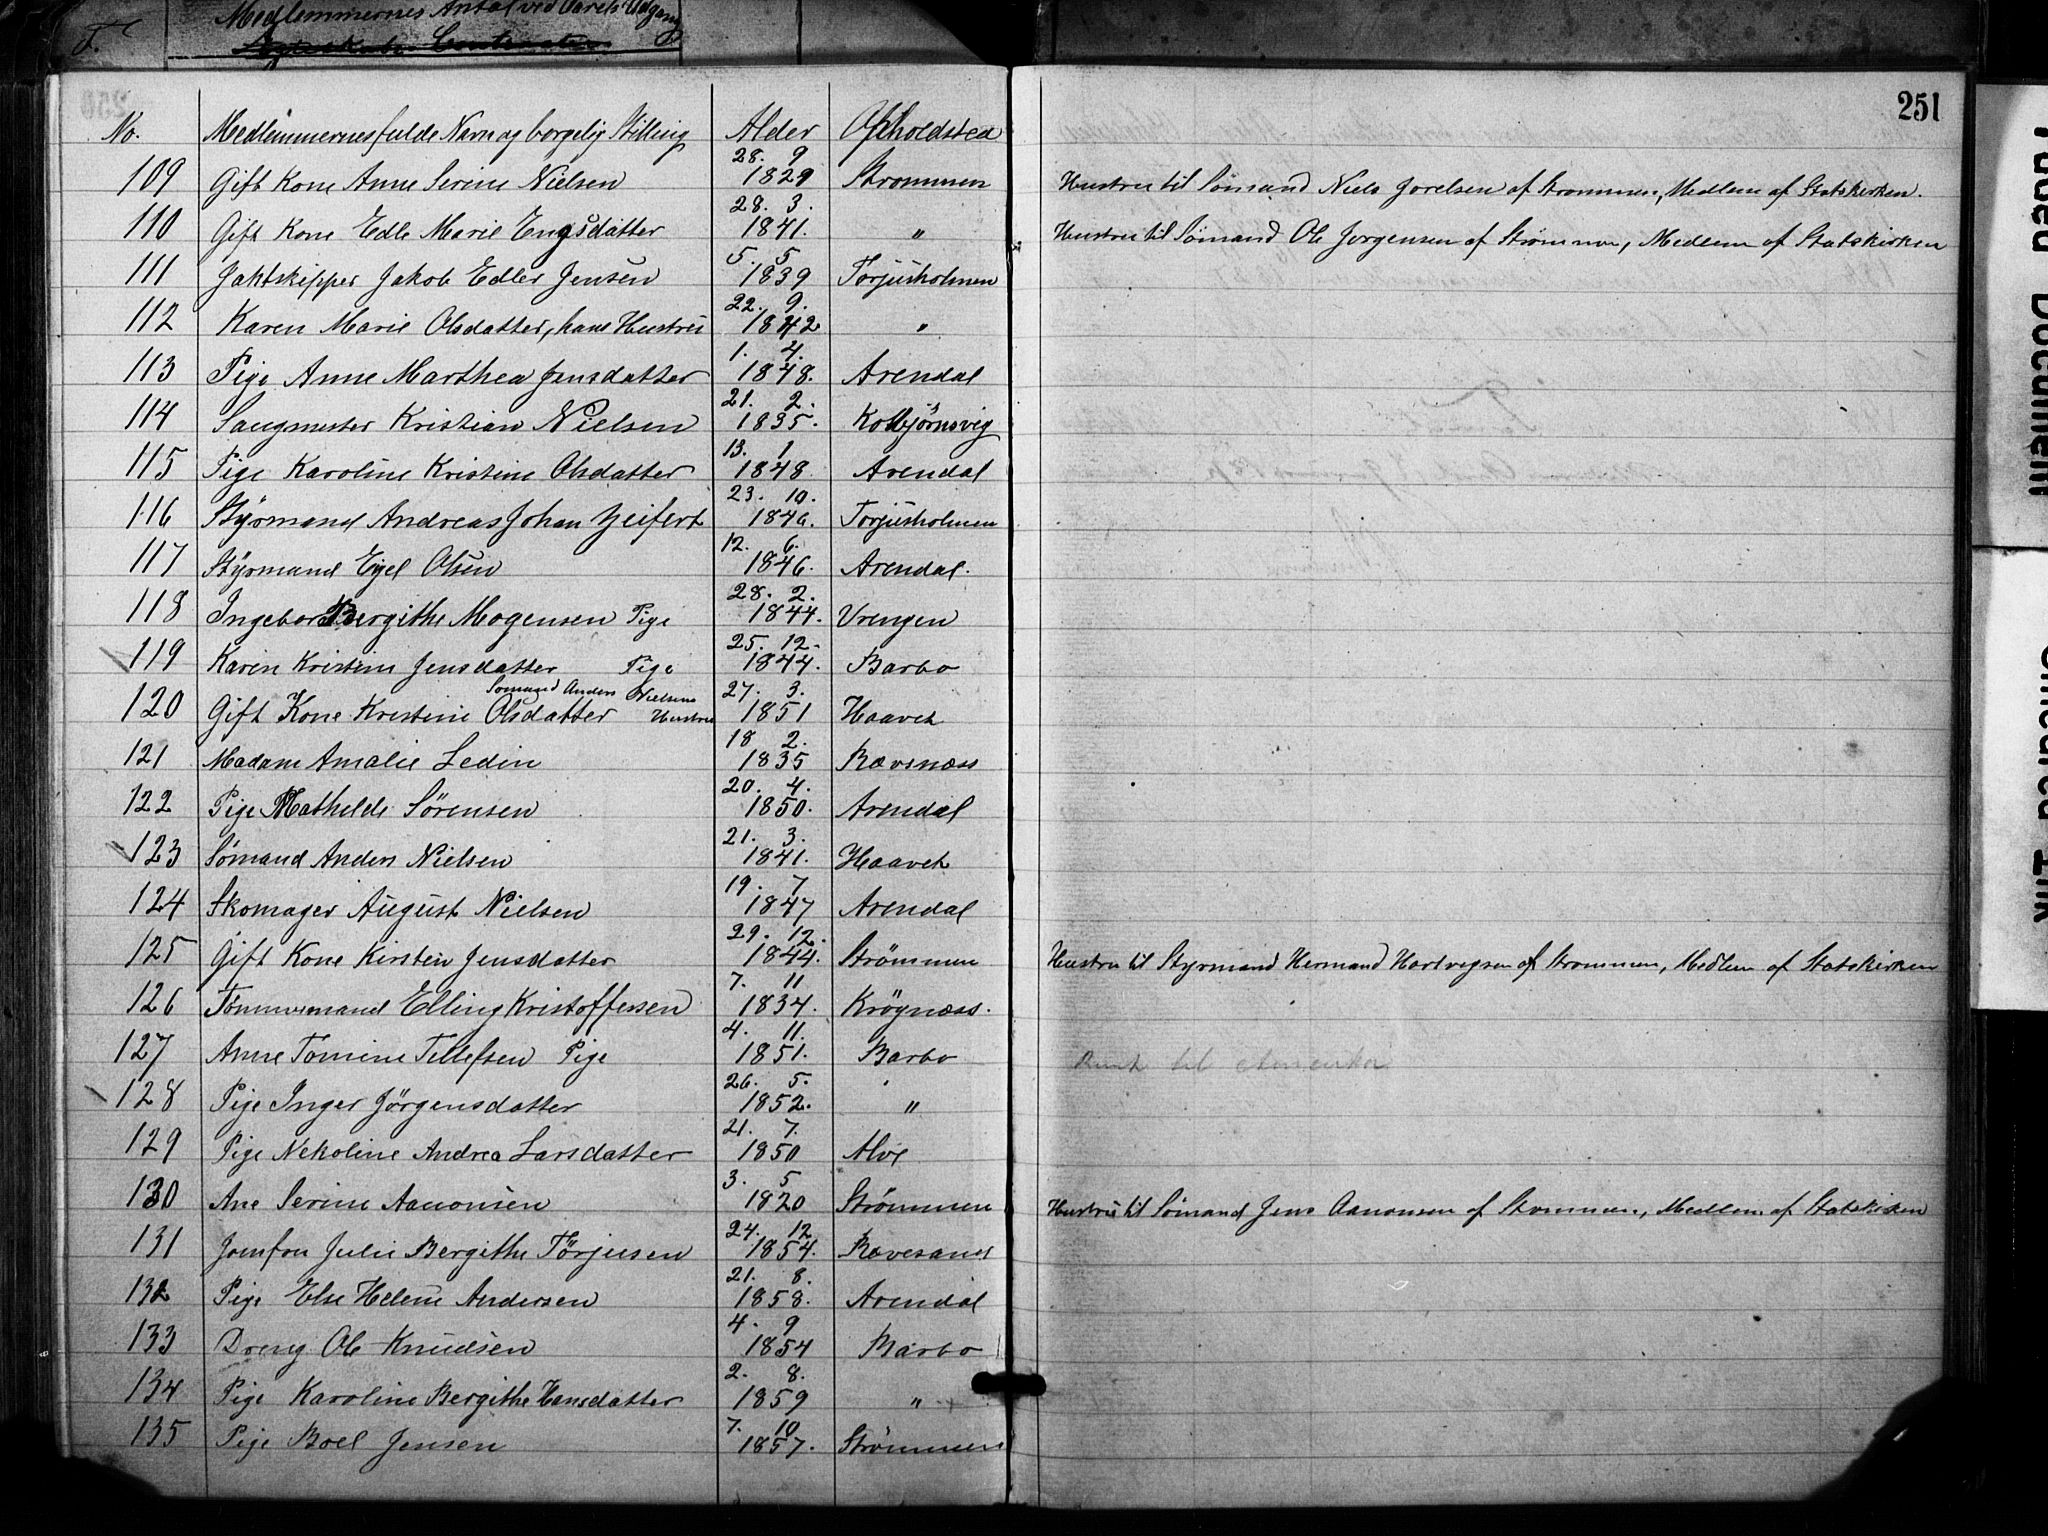 Medlemmernes Antal ved Aarets Udgang
F.
251
No. Medlemmernes fulde Navn og borgelig Stilling Alder Opholdsted
109 Gift Kone Anne Serine Nielsen 28. 9 1829 Strommen Hustru til Sømand Niels Jorelsen af Strommen, Medlem af Statskirken.
110 Gift Kone Edle Marie Engsdatter 28. 3. 1841. " Hustru til Sømand Ole Jorgensen af Strømmen, Medlem af Statskirken
111 Jaktskipper Jakob Edler Jensen 5. 5 1839 Torjusholmen
112 Karen Marie Olsdatter, hans Hustru 22. 9. 1842 "
113 Pige Anne Marthea Jensdatter 1. 4. 1848. Arendal
114 Saugmester Kristian Nielsen 21. 2. 1835. Kolbjörnsvig
115 Pige Karoline Kristine Olsdatter 13. 1 1848 Arendal
116 Styrmand Andreas Johan Zeifert 23. 10. 1846. Torjusholmen
117 Styrmand Ejel Olsen 12. 6. 1846. Arendal.
118 Ingebor Bergithe Mogensen Pige 28. 2. 1844. Vrengen
119 Karen Kristine Jensdatter Pige 25. 12. 1844. Barbo
Sömand Anders Nielsens
120 Gift Kone Kristine Olsdatter Hustru 27. 3. 1851 Haavet
121 Madam Amalie Ledin 18 2. 1835 Rævsnæss
122 Pige Mathilde Sørensen 20. 4. 1850. Arendal
123 Sømand Anders Nielsen 21. 3. 1841. Haavet
124 Skomager August Nielsen 19. 7 1847 Arendal
125 Gift Kone Kirsten Jensdatter 29. 12. 1844. Strömmen Hustru til Styrmand Hermand Hartvigsen af Strommen, Medlem af Statskirken
126 Tömmermand Elling Kristoffersen 7. 11 1834. Krögnæss.
127 Anne Tomine Tellefsen Pige 4. 11. 1851. Barbo Reist til Amerika
128 Pige Inger Jörgensdatter 26. 5. 1852. "
129 Pige Nekoline Andrea Larsdatter 21. 7. 1850 Alve
130 Ane Serine Aanonsen 3. 5 1820 Strömmen Hustru til Sømand Jens Aanonsen af Strommen, Medlem af Statskirken
131 Jomfru Julie Bergithe Törjusen 24. 12 1854. Rævesand
132 Pige Else Helene Andersen 21. 8. 1858. Arendal
133 Dreng Ole Knudsen 4. 9 1854 Barbo
134 Pige Karoline Bergithe Hansdatter 2. 8. 1859 "
135 Pige Boel Jensen 7. 10 1857. Strömmen
Faded Document